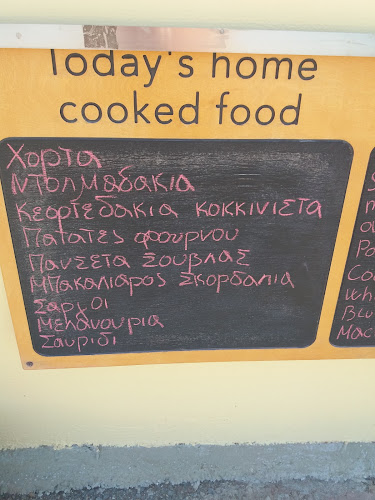 Today's home
cooked food
Χορτα
Ντολμαδακια
Κεφρτεδακια κοκκινιστα
Πατατες φουρνου
Πανσετα Σουβλας
Μπακαλιαρος Σκορδαλια
Σαργοι
Μελανουρια
Σαυριδι